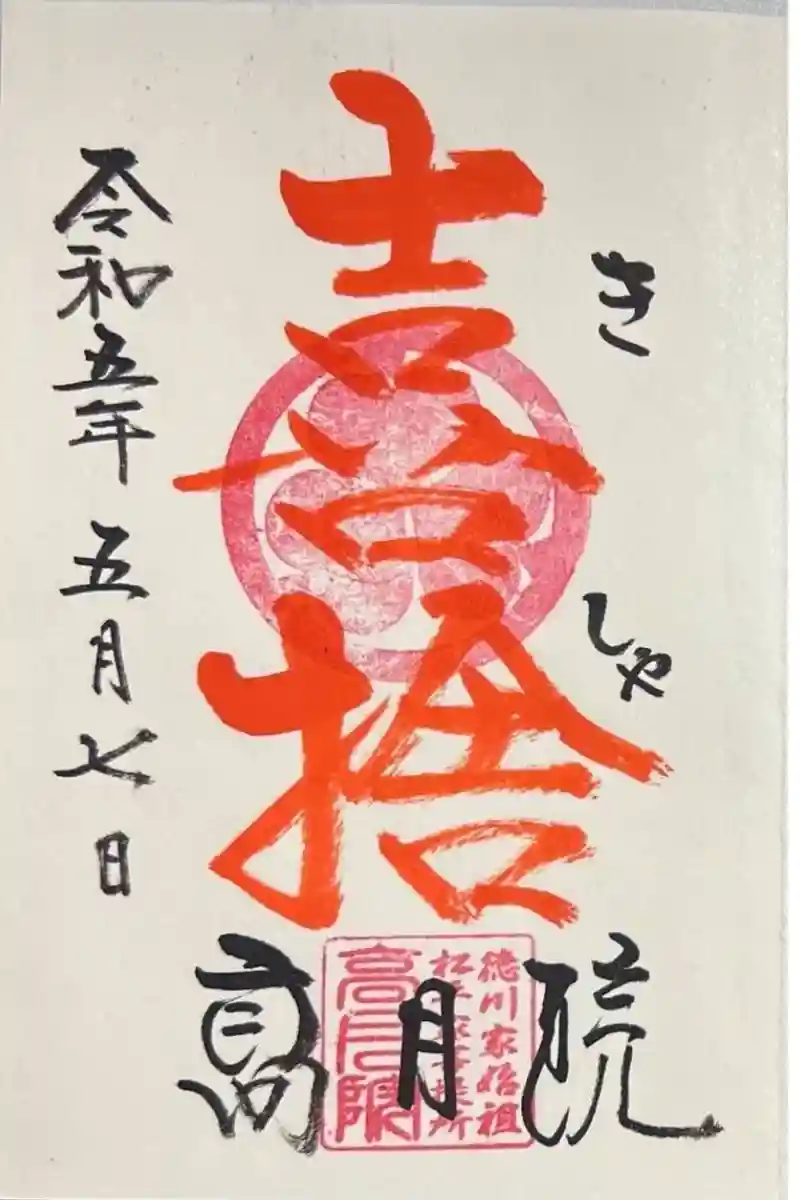 き しゃ
喜捨
令和五年 五月七日
高月院
徳川家始祖
松平家菩提所
高月院